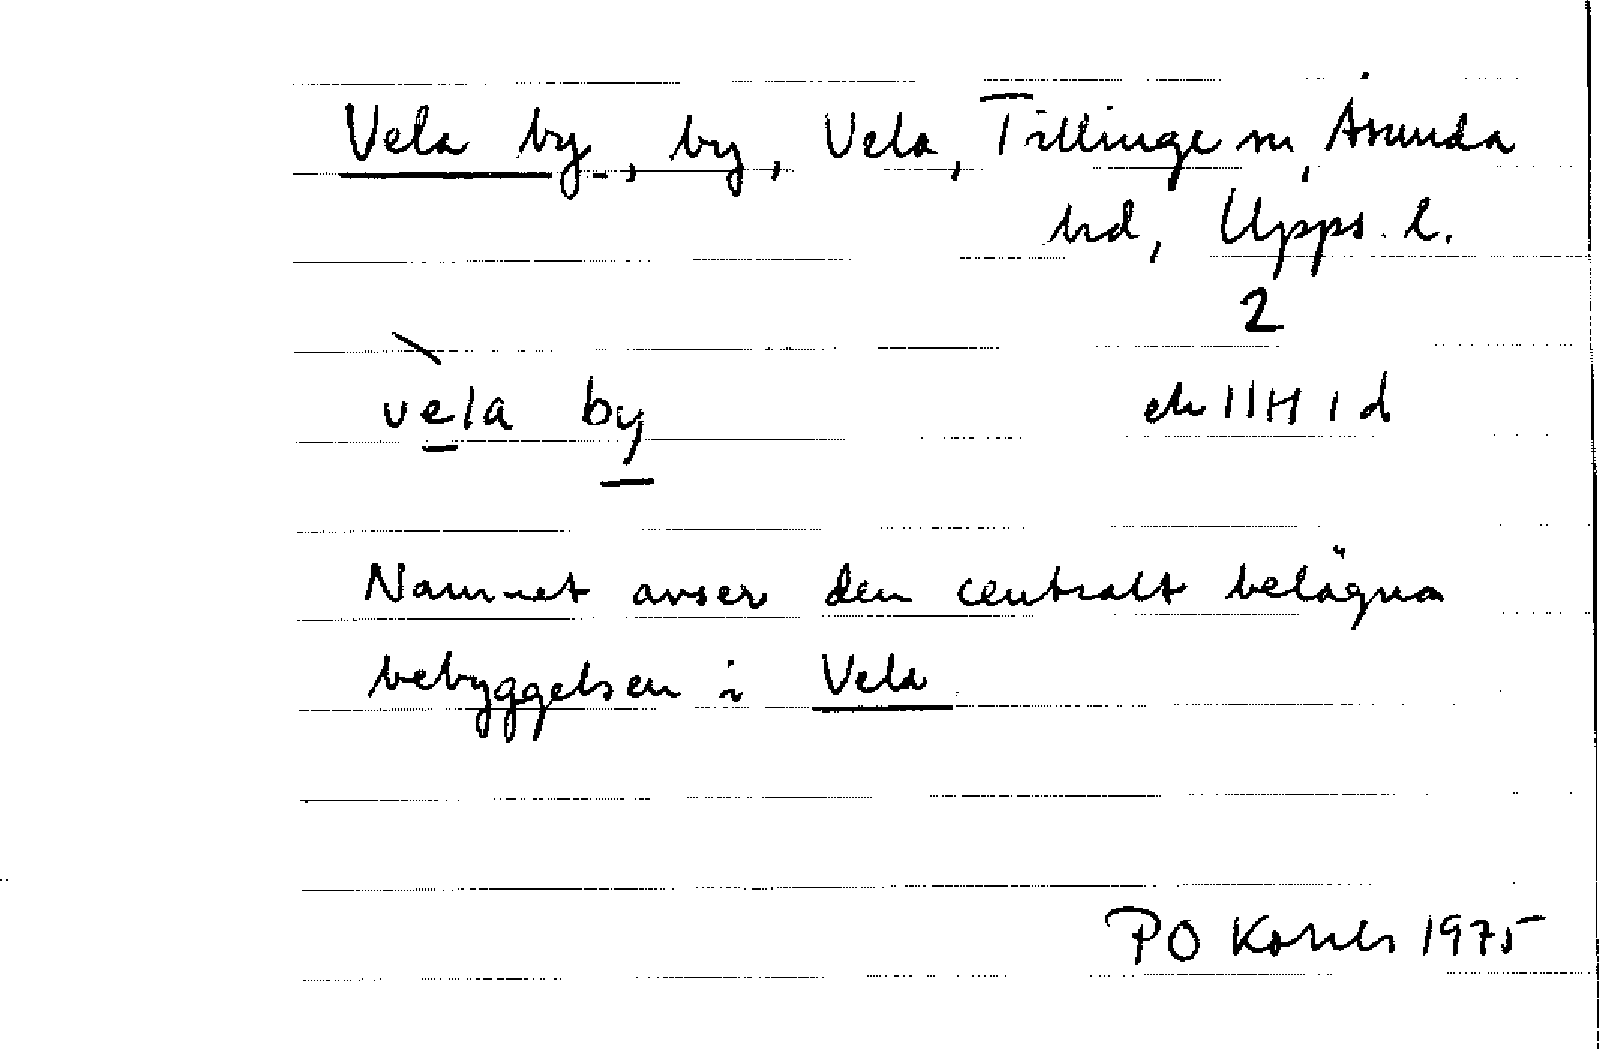 Vela by, by, Vela, Tillinge sn, Åsunda
hd, Upps. l.
2
vela by ek 11H 1 d
Namnet avser den centralt belägna
bebyggelsen i Vela
PO 1975